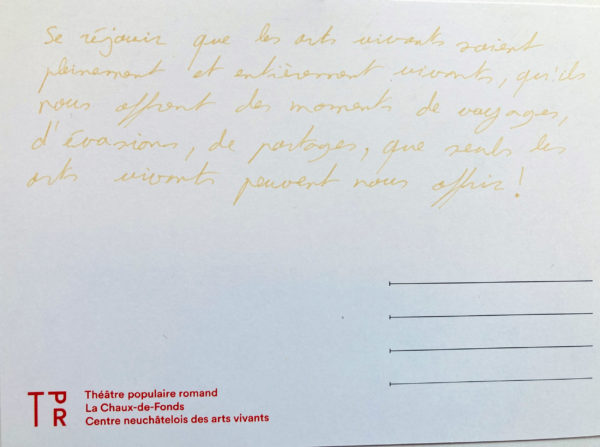 Se réjouir que les arts vivants soient
pleinement et entièrement vivants, qu'ils
nous offrent des moments de voyages,
d'évasions, de partages, que seuls les
arts vivants peuvent nous offrir !
TPR
Théâtre populaire romand
La Chaux-de-Fonds
Centre neuchâtelois des arts vivants